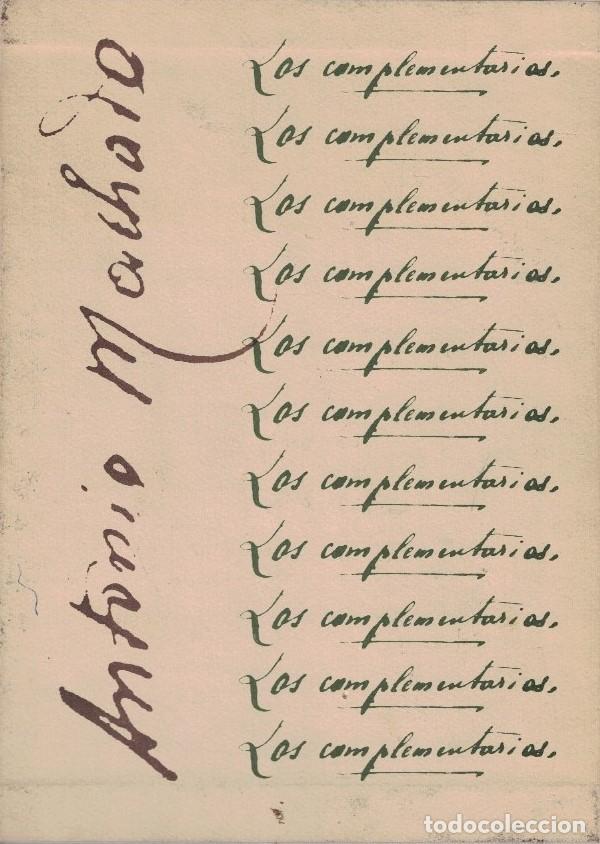 Antonio Machado
Los complementarios.
Los complementarios.
Los complementarios.
Los complementarios.
Los complementarios.
Los complementarios.
Los complementarios.
Los complementarios.
Los complementarios.
Los complementarios.
Los complementarios.
todocoleccion